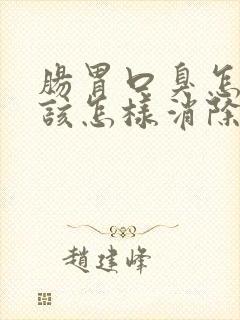 腸胃口臭怎
該怎樣消除
趙建峰